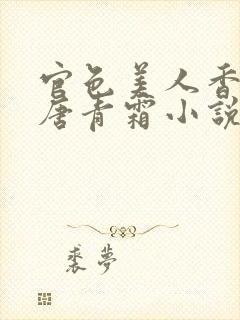 官色美人香
唐青霜小説
裘夢